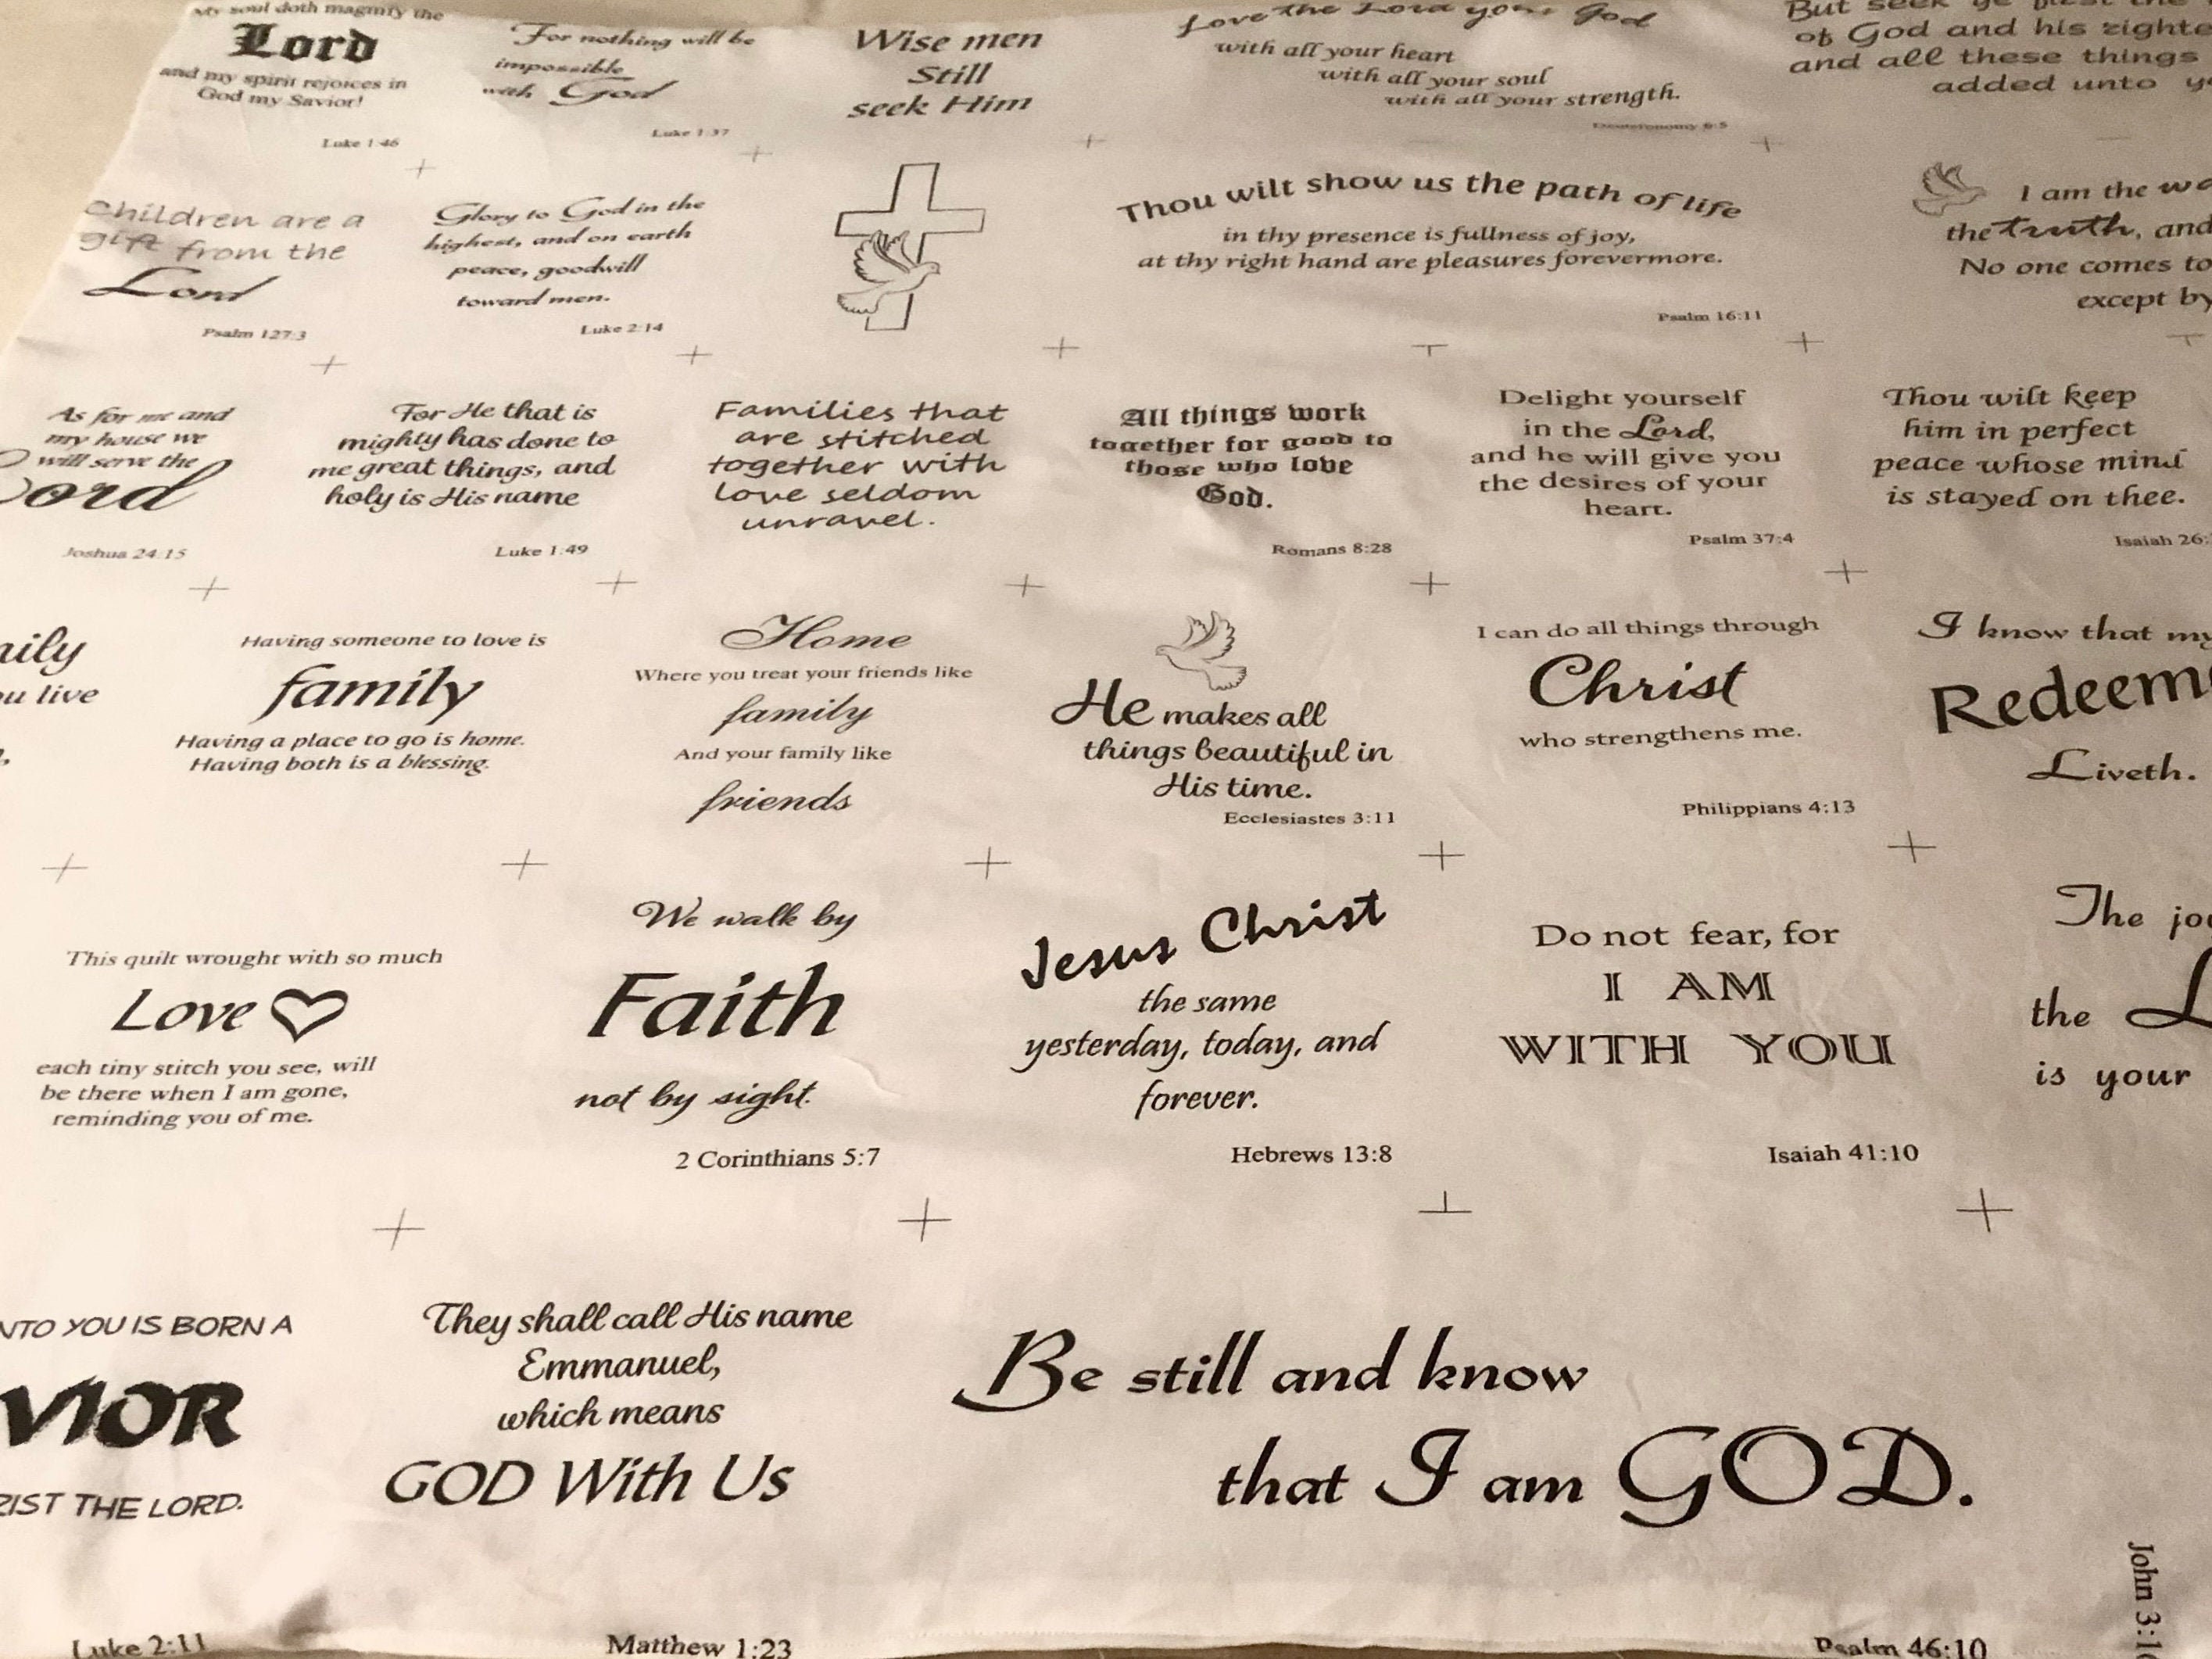 My soul doth magnify the
Lord
and my spirit rejoices in
God my Savior!
Luke 1:46
For nothing will be
impossible
with God
Luke 1:37
Wise men
Still
seek Him
Love the Lord your God
with all your heart
with all your soul
with all your strength.
Deuteronomy 6:5
But seek ye first the
of God and his righte
and all these things
added unto
Children are a
gift from the
Lord
Psalm 127:3
Glory to God in the
highest, and on earth
peace, goodwill
toward men.
Luke 2:14
Thou wilt show us the path of life
in thy presence is fullness of joy,
at thy right hand are pleasures forevermore.
Psalm 16:11
I am the wa
the truth, and
No one comes to
except by
As for me and
my house we
will serve the
Lord
Joshua 24:15
For He that is
mighty has done to
me great things, and
holy is His name
Luke 1:49
Families that
are stitched
together with
love seldom
unravel.
All things work
together for good to
those who love
God.
Romans 8:28
Delight yourself
in the Lord,
and he will give you
the desires of your
heart.
Psalm 37:4
Thou wilt keep
him in perfect
peace whose mind
is stayed on thee.
Isaiah 26:
mily
ou live
Having someone to love is
family
Having a place to go is home.
Having both is a blessing.
Home
Where you treat your friends like
family
And your family like
friends
He makes all
things beautiful in
His time.
Ecclesiastes 3:11
I can do all things through
Christ
who strengthens me.
Philippians 4:13
I know that my
Redeem
Liveth.
This quilt wrought with so much
Love
each tiny stitch you see, will
be there when I am gone,
reminding you of me.
We walk by
Faith
not by sight.
2 Corinthians 5:7
Jesus Christ
the same
yesterday, today, and
forever.
Hebrews 13:8
Do not fear, for
I AM
WITH YOU
Isaiah 41:10
The jo
the L
is your
NTO YOU IS BORN A
VIOR
RIST THE LORD.
Luke 2:11
They shall call His name
Emmanuel,
which means
GOD With Us
Matthew 1:23
Be still and know
that I am GOD.
Psalm 46:10
John 3:16